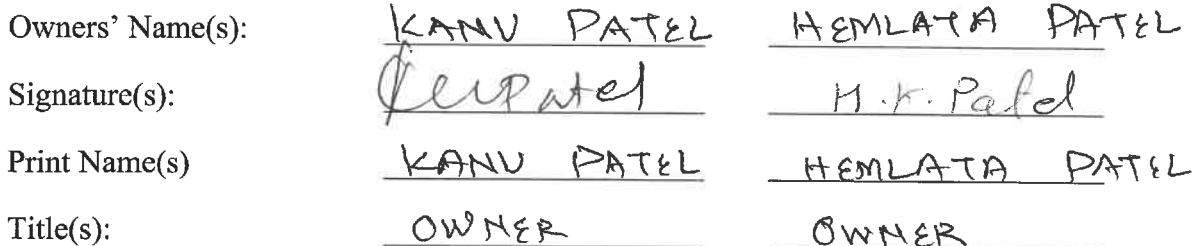 Owners' Name(s): KANU PATEL HEMLATA PATEL
Signature(s): Patel H.K. Patel
Print Name(s) KANU PATEL HEMLATA PATEL
Title(s): OWNER OWNER